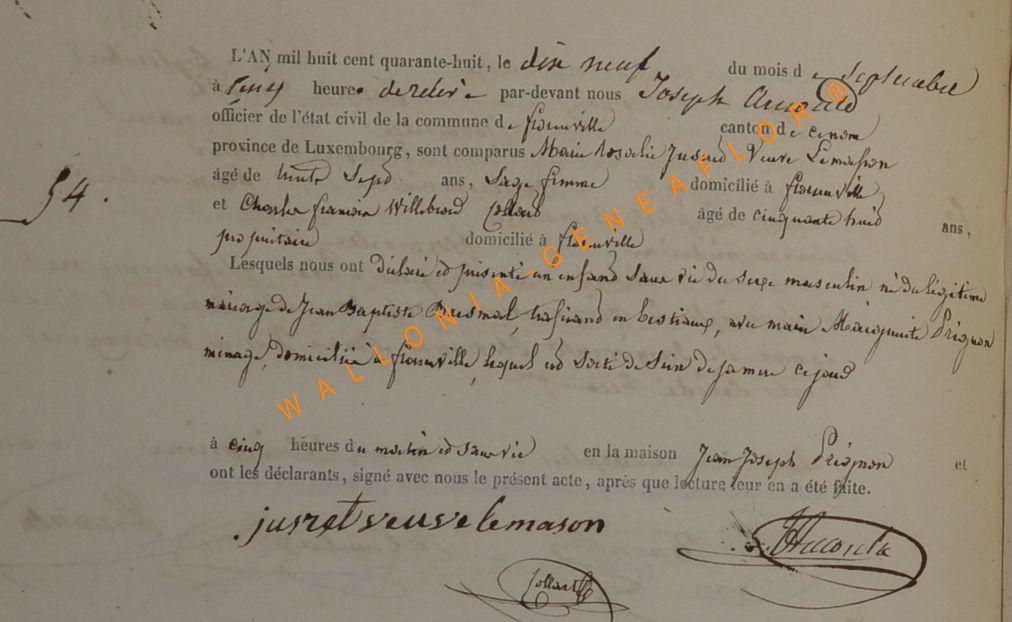 L'AN mil huit cent quarante-huit, le dix neuf du mois de Septembre
à cinq heures de relevé par-devant nous Joseph
officier de l'état civil de la commune de florenville canton de ce nom
province de Luxembourg, sont comparus Marie Rosalie Jusret Veuve Lemasson
54.
âgé de trente Sept ans, Sage femme domicilié à florenville
et Charles françois Willebrord Collard âgé de cinquante huit ans,
propriétaire domicilié à florenville
Lesquels nous ont déclaré et présenté un enfant sans vie du sexe masculin né du légitime
mariage de Jean Baptiste trafiquant en bestiaux, avec marie Marguerite Prignon
ménagère, domiciliée à florenville, lequel est sorti du sein de sa mere ce jour
à cinq heures du matin et sans vie en la maison Jean Joseph Prignon et
ont les déclarants, signé avec nous le présent acte, après que lecture leur en a été faite.
jusret veuve lemason
Collard
WALLONIA-GENEAFLOR ®